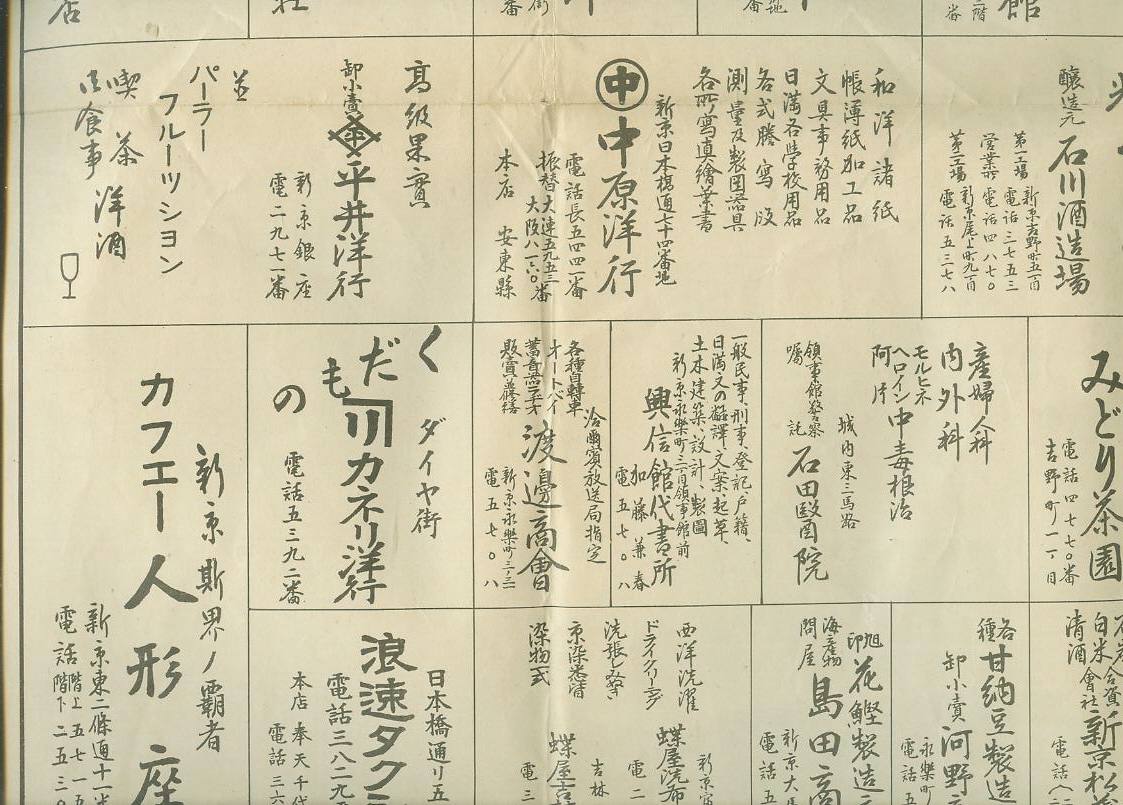 館
醸造元
石川酒造場
第一工場 新京吉野町五丁目
電話三七五三
営業所 電話四八七〇
第二工場 新京尾上町九丁目
電話五三七八
和洋諸紙
帳簿紙加工品
文具事務用品
日満各学校用品
各式謄写版
測量及製図器具
各所寫真繪葉書
新京日本橋通七十四番地
中 中原洋行
電話長五四四一番
振替大連五九五三番
大阪八一六〇番
本店 安東縣
高級果實
卸小賣 平井洋行
新京銀座
電二九七一番
並
パーラー
フルーツション
喫茶
食事
洋酒
みどり茶園
電話四七七〇番
吉野町一丁目
産婦人科
内外科
モルヒネ
ヘロイン
阿片
中毒根治
城内東三馬路
領事館警察
嘱託
石田醫院
一般民事、刑事、登記、戸籍、
日満文の飜譯、文案、起草、
土木建築、設計、製圖
新京永樂町三丁目領事館前
興信館代書所
加藤兼春
電五七〇八
各種自轉車
オートバイ
蓄音器ラヂオ
販賣並修繕
哈爾賓放送局指定
渡邊商會
新京永樂町三ノ三
電五七〇八
くだもの
ダイヤ街
カネリ洋行
電話五三九二番
新京斯界ノ覇者
カフエー人形座
新京東二條通十一
電話 階上五七一五
階下二五三〇
白米
清酒
合資會社
新京松
電話
各種
甘納豆製造
卸小賣 河野
永樂町
電話五
旭印
花鰹製造
海産物
問屋
島田商
新京大馬
電話五
西洋洗濯
ドライクリーニング
洗張しみぬき
京染悉皆
染物一式
蝶屋洗布
新京
電二
蝶屋吉
吉林
電三
日本橋通リ五
浪速タク
電話三八二九
本店 奉天千代
電話三六